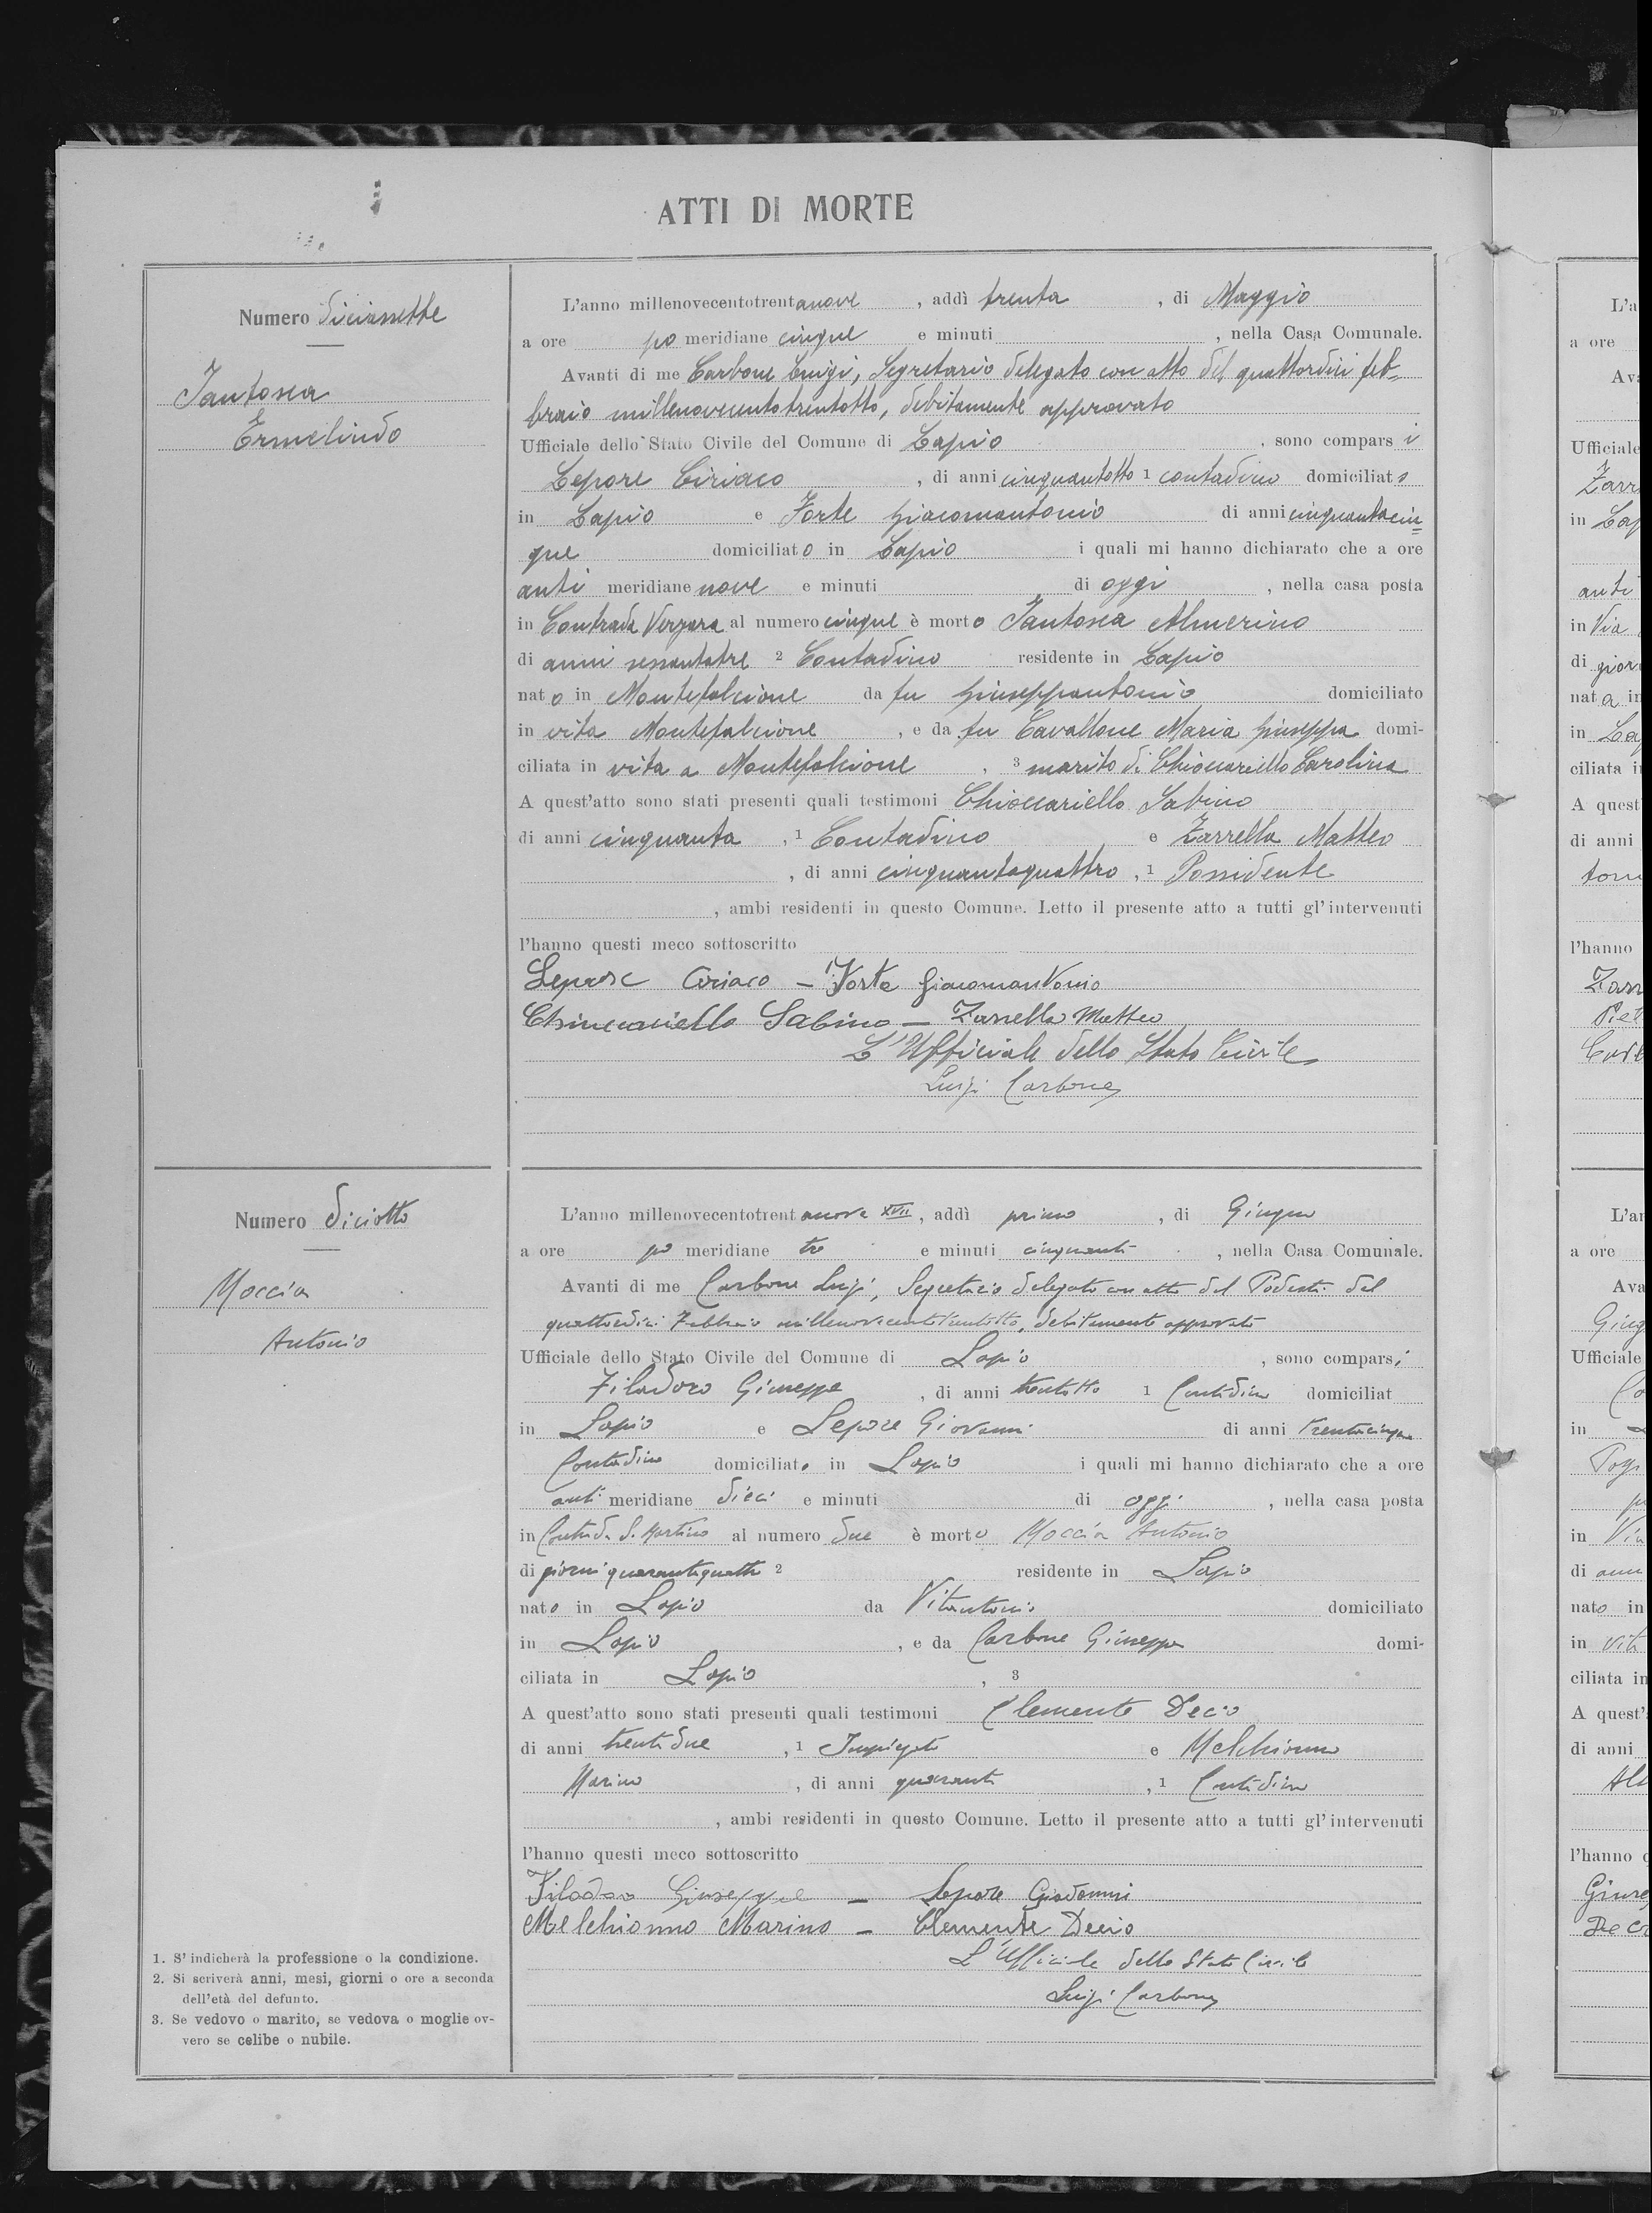 ATTI DI MORTE
Numero diciassette
Iantosca
Ermelindo
L'anno millenovecentotrentanove, addì trenta, di Maggio
a ore pomeridiane cinque e minuti , nella Casa Comunale.
Avanti di me Carbone Luigi, Segretario delegato con atto del quattordici feb-
braio millenovecentotrentotto, debitamente approvato
Ufficiale dello Stato Civile del Comune di Lapio, sono comparsi
Lepore Ciriaco, di anni cinquantotto 1 contadino domiciliato
in Lapio e Forte Giacomantonio di anni cinquantacin=
que domiciliato in Lapio i quali mi hanno dichiarato che a ore
anti meridiane nove e minuti di oggi, nella casa posta
in Contrada Verzara al numero cinque è morto Iantosca Almerino
di anni sessantatre 2 Contadino residente in Lapio
nato in Montefalcione da fu Giuseppantonio domiciliato
in vita Montefalcione, e da fu Cavallone Maria Giuseppa domi-
ciliata in vita a Montefalcione, 3 marito di Chioccariello Carolina
A quest'atto sono stati presenti quali testimoni Chioccariello Sabino
di anni cinquanta, 1 Contadino e Zarrella Matteo
, di anni cinquantaquattro, 1 Possidente
, ambi residenti in questo Comune. Letto il presente atto a tutti gl'intervenuti
l'hanno questi meco sottoscritto
Lepore Ciriaco - Forte Giacomantonio
Chioccariello Sabino - Zarrella Matteo
L'Ufficiale dello Stato Civile
Luigi Carbone
Numero diciotto
Moccia
Antonio
L'anno millenovecentotrentanove XVII, addì primo, di Giugno
a ore pomeridiane tre e minuti cinquanta, nella Casa Comunale.
Avanti di me Carbone Luigi, Segretario delegato con atto del Podestà del
quattordici Febbraio millenovecentotrentotto, debitamente approvato
Ufficiale dello Stato Civile del Comune di Lapio, sono comparsi
Filadoro Giuseppe, di anni trentotto 1 Contadino domiciliat
in Lapio e Lepore Giovanni di anni trentacinque
Contadino domiciliato in Lapio i quali mi hanno dichiarato che a ore
anti meridiane dieci e minuti di oggi, nella casa posta
in Contrada S. Martino al numero due è morto Moccia Antonio
di giorni quarantaquattro 2 residente in Lapio
nato in Lapio da Vitantonio domiciliato
in Lapio, e da Carbone Giuseppa domi-
ciliata in Lapio, 3
A quest'atto sono stati presenti quali testimoni Clemente Decio
di anni trentadue, 1 Impiegato e Melchionno
Marino, di anni quaranta, 1 Contadino
, ambi residenti in questo Comune. Letto il presente atto a tutti gl'intervenuti
l'hanno questi meco sottoscritto
Filadoro Giuseppe - Lepore Giovanni
Melchionno Marino - Clemente Decio
L'Ufficiale dello Stato Civile
Luigi Carbone
1. S'indicherà la professione o la condizione.
2. Si scriverà anni, mesi, giorni o ore a seconda
dell'età del defunto.
3. Se vedovo o marito, se vedova o moglie ov-
vero se celibe o nubile.